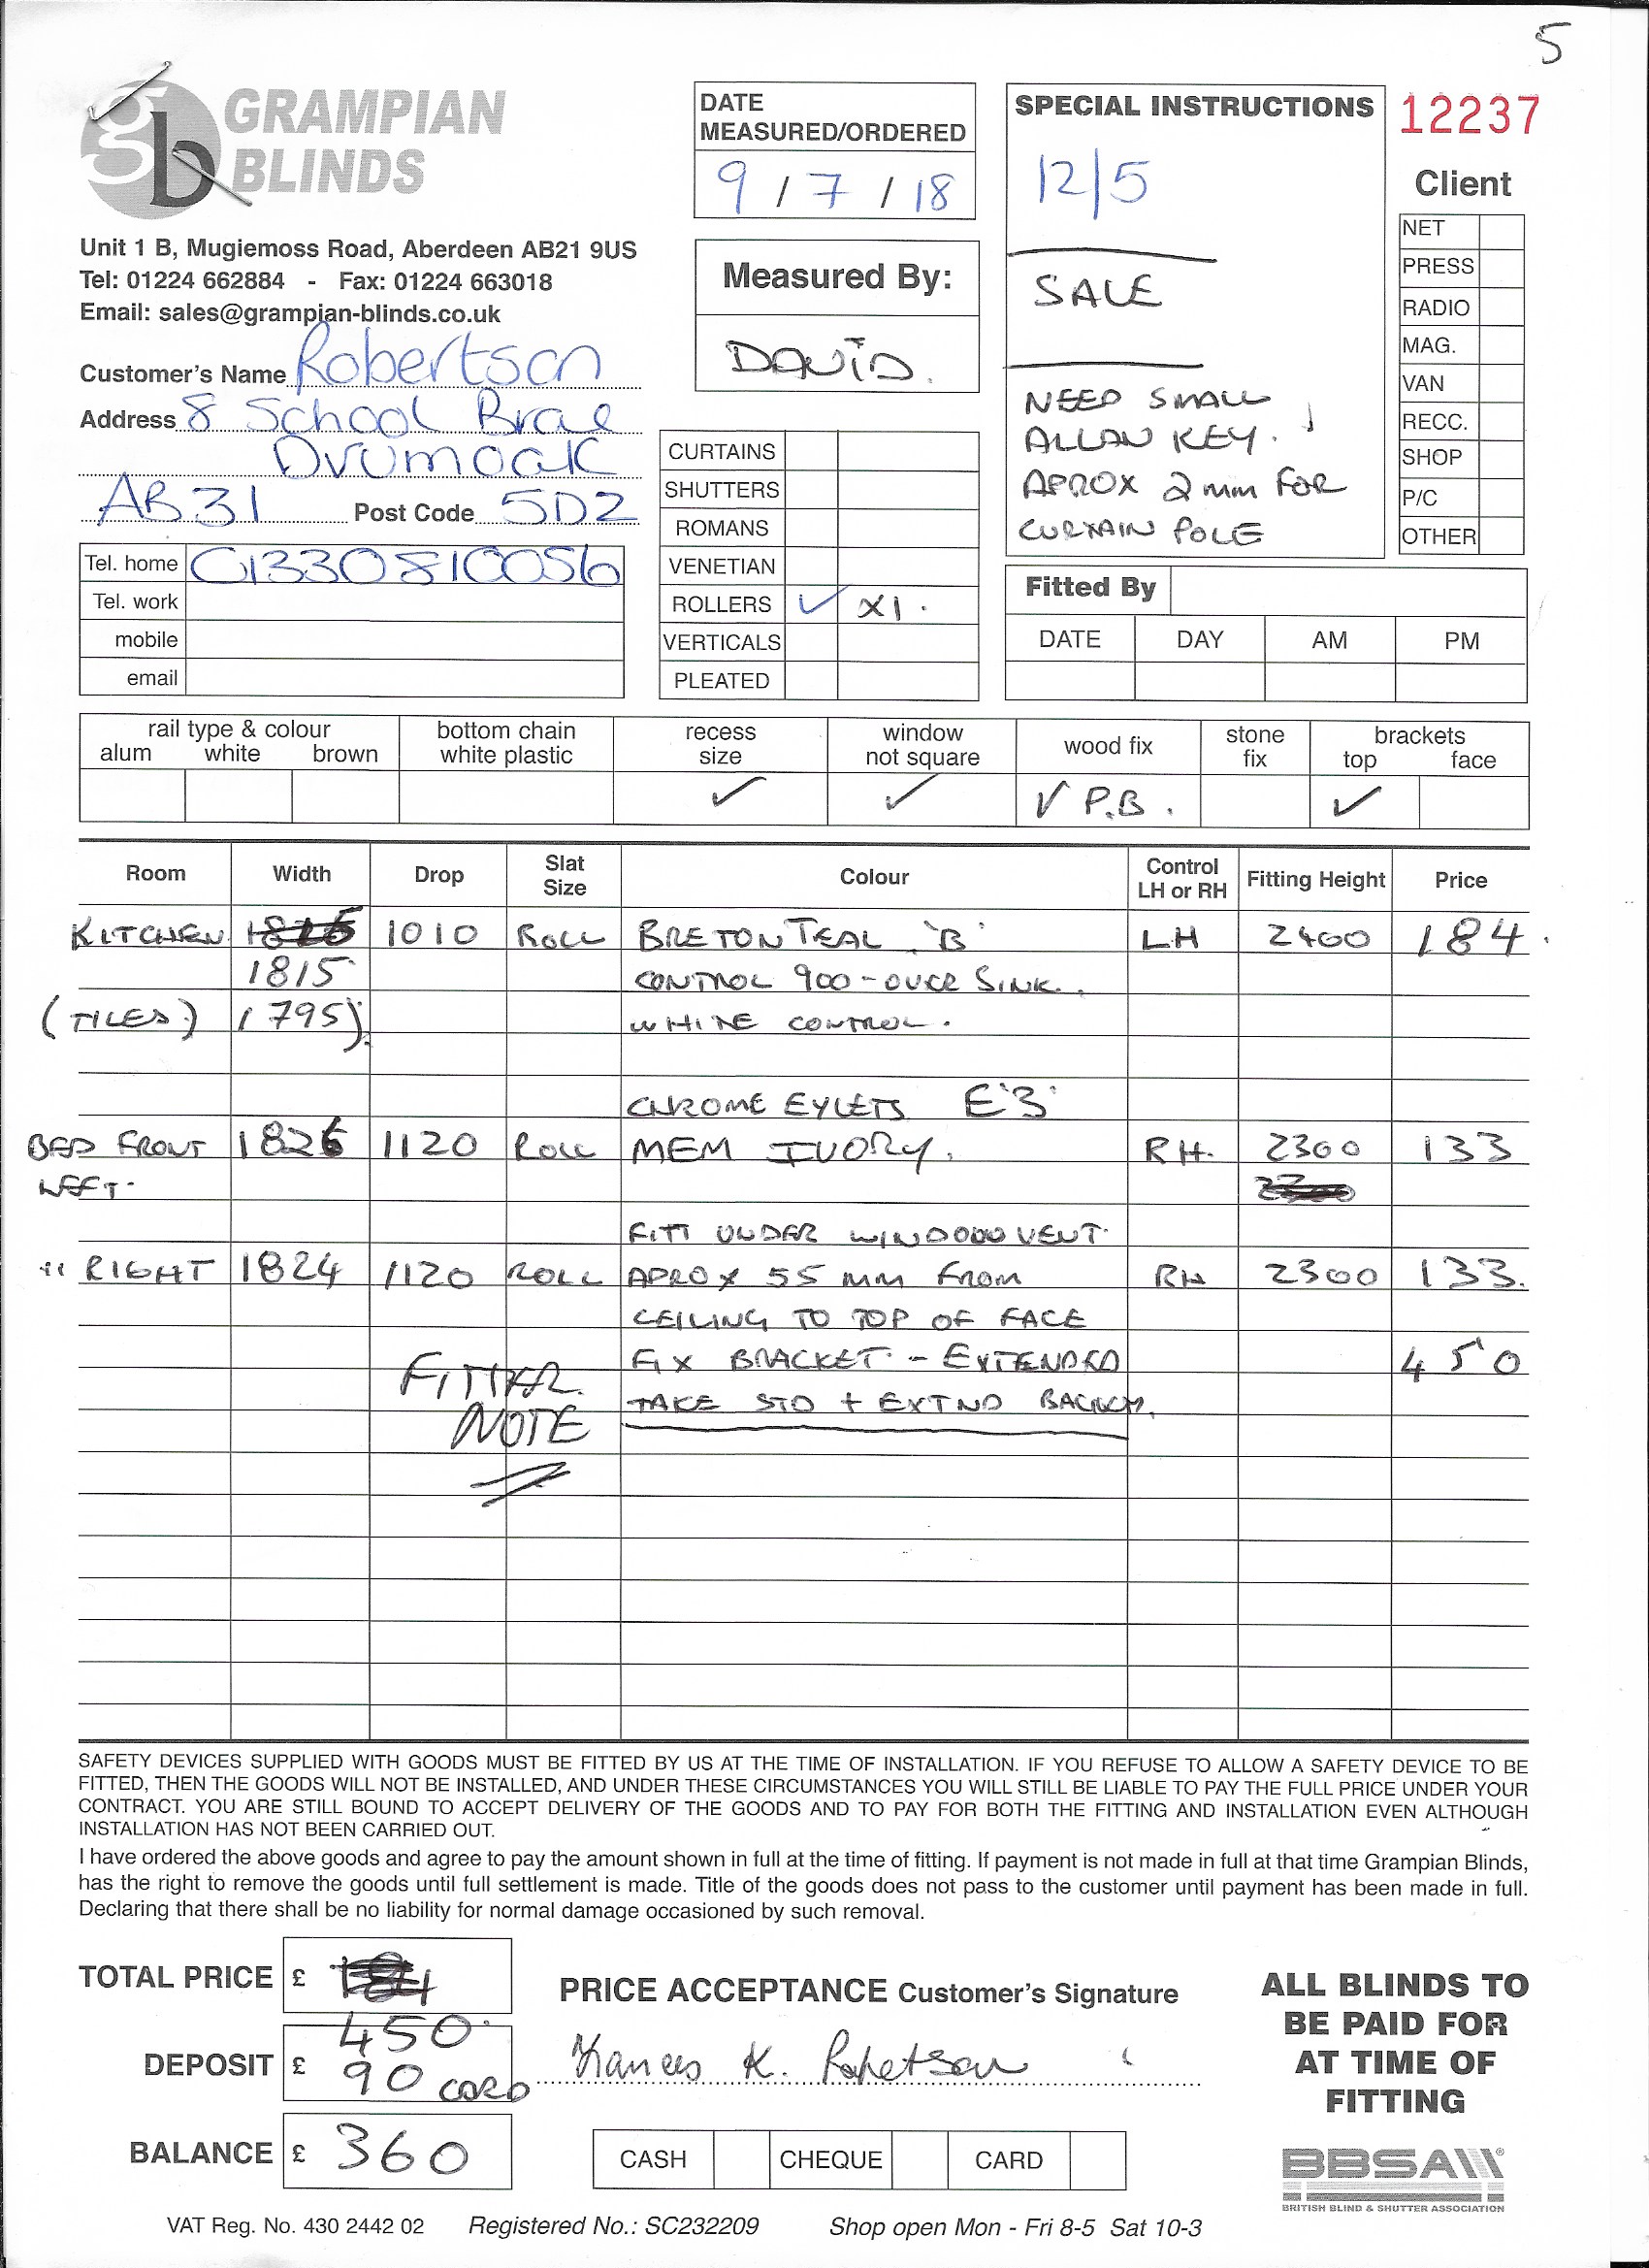 5
GRAMPIAN
BLINDS
gb
Unit 1 B, Mugiemoss Road, Aberdeen AB21 9US
Tel: 01224 662884 - Fax: 01224 663018
Email: sales@grampian-blinds.co.uk
Customer's Name Robertson
Address 8 School Brae
Drumoak
AB31 Post Code 5DZ
Tel. home 01330810056
Tel. work
mobile
email
DATE
MEASURED/ORDERED
9 / 7 / 18
Measured By:
DAVID.
CURTAINS
SHUTTERS
ROMANS
VENETIAN
ROLLERS ✓ X1.
VERTICALS
PLEATED
SPECIAL INSTRUCTIONS
12/5
SALE
NEED SMALL
ALLAN KEY.
APROX 2mm FOR
CURTAIN POLE
12237
Client
NET
PRESS
RADIO
MAG.
VAN
RECC.
SHOP
P/C
OTHER
Fitted By
DATE DAY AM PM
rail type & colour bottom chain recess window wood fix stone brackets
alum white brown white plastic size not square fix top face
✓ ✓ ✓ P.B. ✓
Room Width Drop Slat Size Colour Control LH or RH Fitting Height Price
KITCHEN 1010 ROLL BRETON TEAL 'B' LH 2400 184.
1815 CONTROL 900-OVER SINK.
(TILES) 1795). WHITE CONTROL.
CHROME EYLETS E'3'
BED FRONT 1826 1120 ROLL MEM IVORY. RH. 2300 133
LEFT.
FITT UNDER WINDOOW VENT.
" RIGHT 1824 1120 ROLL APROX 55 MM FROM RH 2300 133.
CEILING TO TOP OF FACE
FIX BRACKET - EXTENDED 450
FITTER TAKE STD + EXTND
NOTE
SAFETY DEVICES SUPPLIED WITH GOODS MUST BE FITTED BY US AT THE TIME OF INSTALLATION. IF YOU REFUSE TO ALLOW A SAFETY DEVICE TO BE
FITTED, THEN THE GOODS WILL NOT BE INSTALLED, AND UNDER THESE CIRCUMSTANCES YOU WILL STILL BE LIABLE TO PAY THE FULL PRICE UNDER YOUR
CONTRACT. YOU ARE STILL BOUND TO ACCEPT DELIVERY OF THE GOODS AND TO PAY FOR BOTH THE FITTING AND INSTALLATION EVEN ALTHOUGH
INSTALLATION HAS NOT BEEN CARRIED OUT.
I have ordered the above goods and agree to pay the amount shown in full at the time of fitting. If payment is not made in full at that time Grampian Blinds,
has the right to remove the goods until full settlement is made. Title of the goods does not pass to the customer until payment has been made in full.
Declaring that there shall be no liability for normal damage occasioned by such removal.
TOTAL PRICE £ 184
450.
DEPOSIT £ 90 CARD
BALANCE £ 360
PRICE ACCEPTANCE Customer's Signature
Frances K. Robertson
CASH CHEQUE CARD
ALL BLINDS TO
BE PAID FOR
AT TIME OF
FITTING
BBSA
BRITISH BLIND & SHUTTER ASSOCIATION
VAT Reg. No. 430 2442 02 Registered No.: SC232209 Shop open Mon - Fri 8-5 Sat 10-3